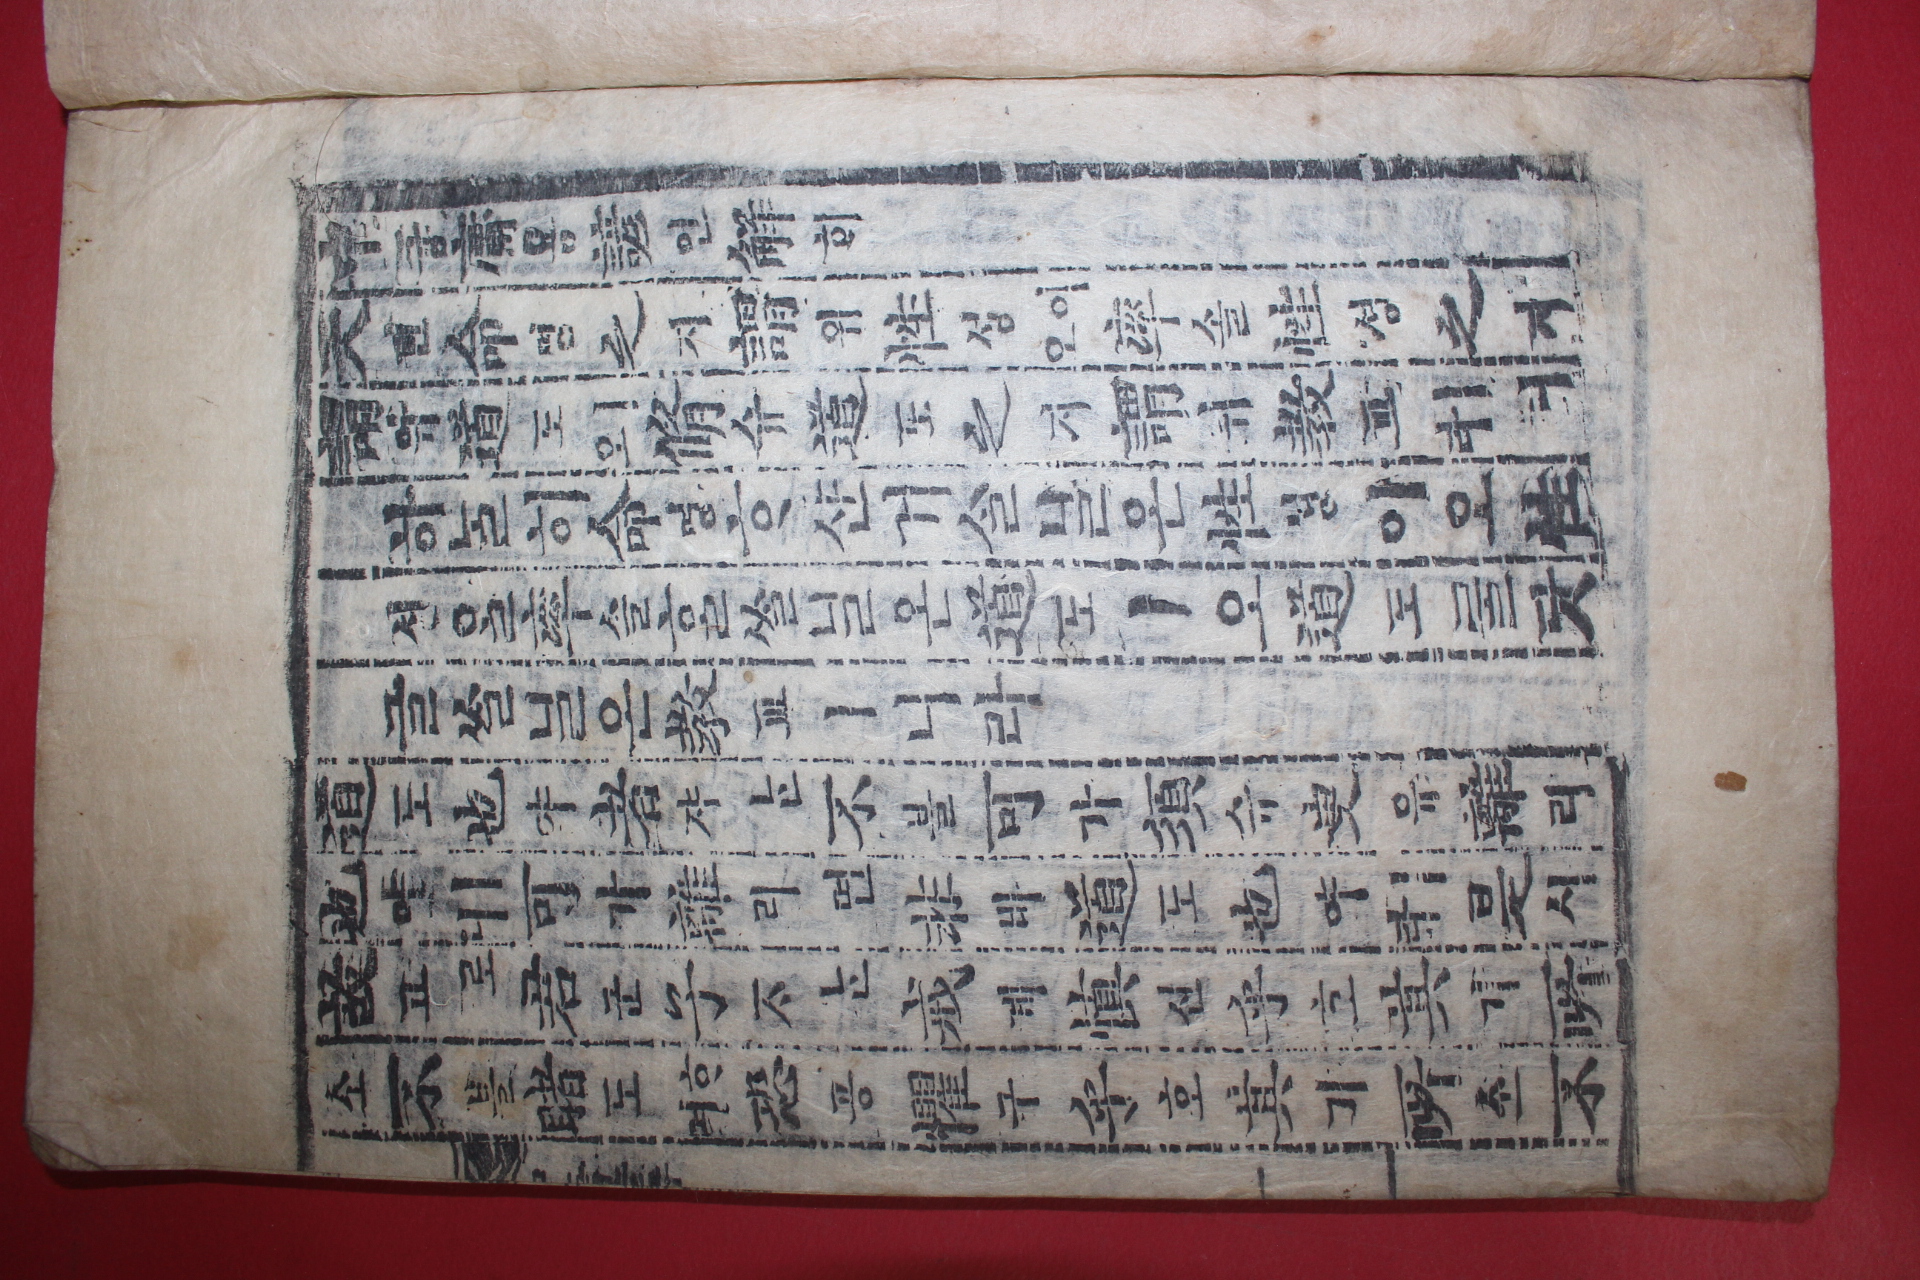 中듕庸용諺언解ᄒᆡ
天텬命명之지謂위性셩이오率솔性셩之지
謂위道도ㅣ오脩슈道도之지謂위敎교ㅣ
하ᄂᆞᆯ히命명ᄒᆞ샨거ᄉᆞᆯ닐온性셩이오性
셩을率솔ᄒᆞᆯᄊᆞᆯ닐온道도ㅣ오道도ᄅᆞᆯ닷
글ᄊᆞᆯ닐온敎교ㅣ니라
道도也야者쟈ᄂᆞᆫ不블可가須슈臾유離리
也야ㅣ니可가離리면非비道도也야ㅣ라是시
故고로君군子ᄌᆞᄂᆞᆫ戒계愼신乎호其기所
소不블睹도ᄒᆞ며恐공懼구乎호其기所소不